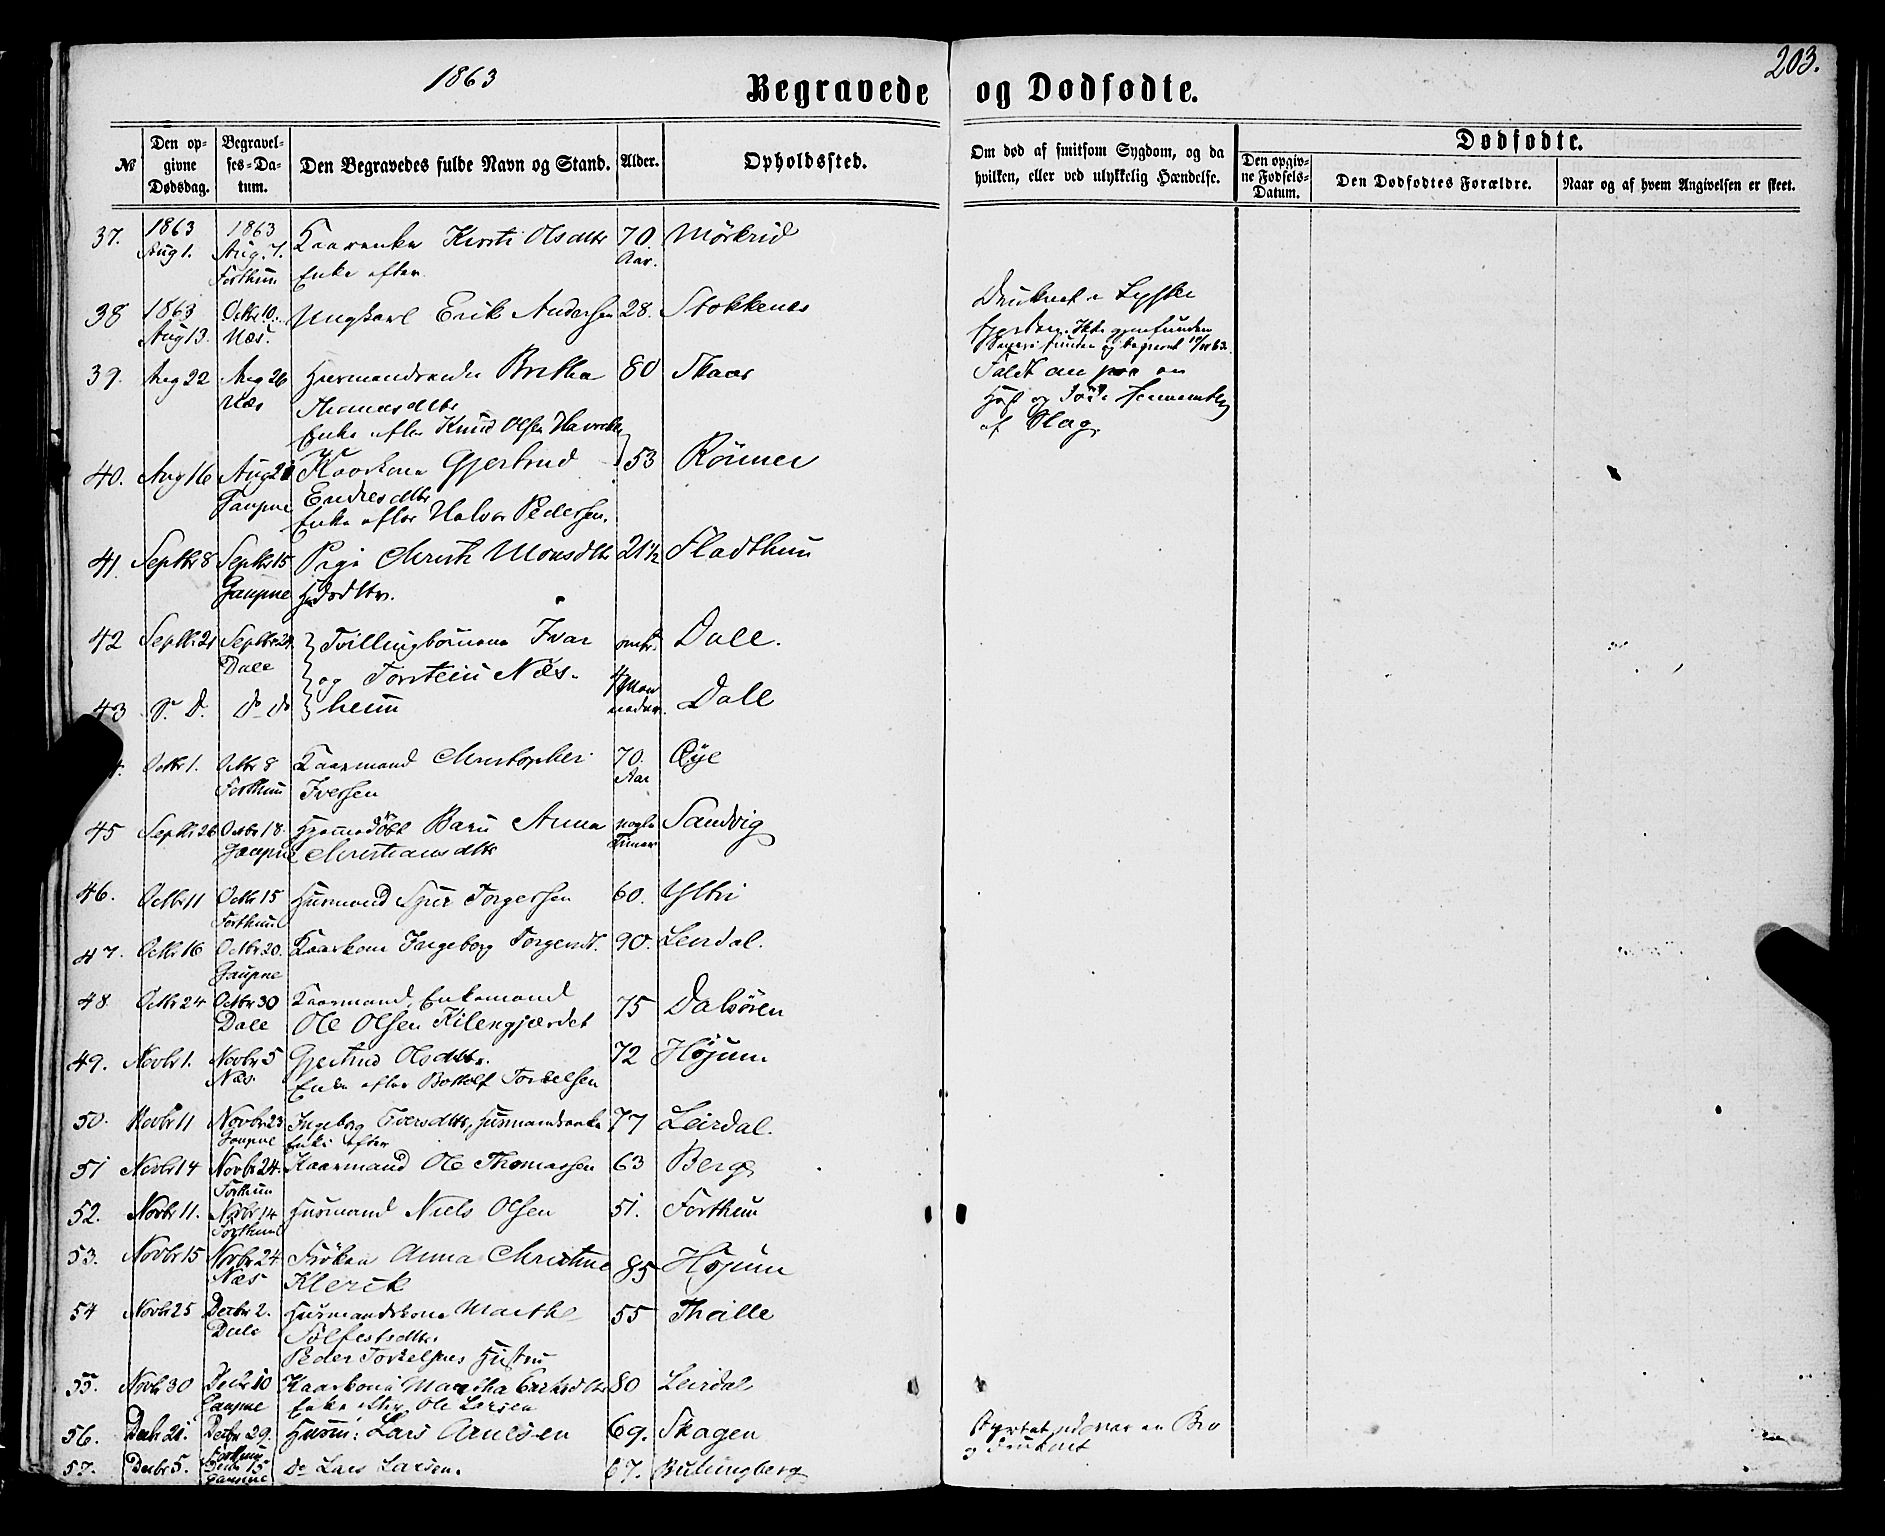 203.
1863 Begravede og Dødfødte.
№ Den op-givne Dødsdag. Begravel-ses-Da-tum. Den Begravedes fulde Navn og Stand. Alder. Opholdssted. Om død af smitsom Sygdom, og da hvilken, eller ved ulykkelig Hændelse. Dødfødte.
Den opgiv-ne Fødsels-Datum. Den Dødfødtes Forældre. Naar og af hvem Angivelsen er skeet.
37. 1863 Aug 1. 1863 Aug. 7. Forthun Kirsti Olsdtr 70. Aar. Mørkrid
Enke efter
38 1863 Aug 13. Octbr 10. Næs. Ungkarl Erik Andersen 28. Stokkenæs Druknet i Lyster
fjorden. Ikke gjenfunden
funden og begravet
39. Aug 22 Aug 26 Næs Britha 80 Skaar Faldt om paa en
Thomasdtr
Enke efter Knud Olsen
af Slag
40. Aug 16 Aug 21 Gaupne Kaarkone Gjertrud 53 Rönnei
Endresdtr
Enke efter Halvor Pedersen.
41. Septbr 8 Septbr 15 Gaupne Pige Christi Monsdtr 21½ Fladthun
42 Septbr 21 Septbr 29 Dale Tvillingbørnene Ivar omtr. Dale.
og Torstein Næs- 4 Maa
43 D. D. Do Do heim neder. Dale
Octbr 1. Octbr 8 Forthun Kaarmand Christopher 70. Aar Øye
Iversen
45 Septbr 26 Octbr 18. Gaupne Hjemmedøbt Barn Anna nogle Timer Sandvig
Christiansdtr
46. Octbr 11 Octbr 15 Forthun Husmand Torgersen 60. Yttri
47. Octbr 16 Octbr 20. Gaupne Kaarkone Ingeborg 90. Leirdal.
48. Octbr 24 Octbr 30 Dale Kaarmand, Enkemand 75 Dalsøren
Ole Olsen Kilengjærdet
49. Novbr 1. Novbr 5 Næs. Gjertrud Olsdtr. 72 Højum
Enke efter Bottolf Torkelsen
50. Novbr 11 Novbr 23 Gaupne Ingeborg Iversdtr, Husmandsenke 77 Leirdal.
Enke efter
51 Novbr 14 Novbr 24. Forthun Kaarmand Ole Thomassen 63 Berg
52. Novbr 11. Novbr 14 Forthun Husmand Niels Olsen 51. Forthun
53. Novbr 15 Novbr 24 Næs Frøken Anna Christine 85 Højum
Klerck
54 Novbr 25 Decbr 2. Dale Husmandskone Marthe 55 Thalle
Sølfestsdtr
Peder Torkelsens Hustru
55. Novbr 30 Decbr 10 Gaupne Kaarkone Martha 80 Leirdal
Enke efter Ole Larsen
56. Decbr 21. Decbr 29. Forthun Husm: Lars Arnesen 69. Skagen Styrtet udover en Bro
og druknet
57. Decbr 5. Decbr 15 Gaupne Do Lars Larsen. 67.